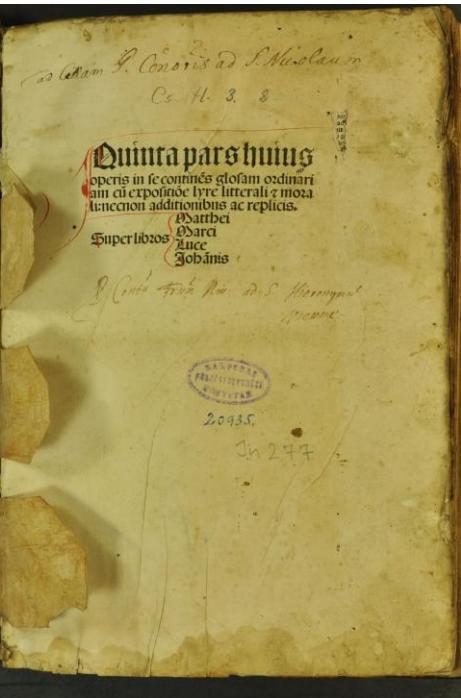 ad Cellam P. Conoris ad S. Nicolaum
Cs. H. 3. 8.
Quinta pars huius
operis in se continēs glosam ordinari
am cū expositiōe lyre litterali ⁊ mora
li: necnon additionibus ac replicis.
Matthei
Marci
Super libros
Luce
Johānis
ad S. Hieronymum
Viennae
KÖNYVTÁR
20935.
In 277